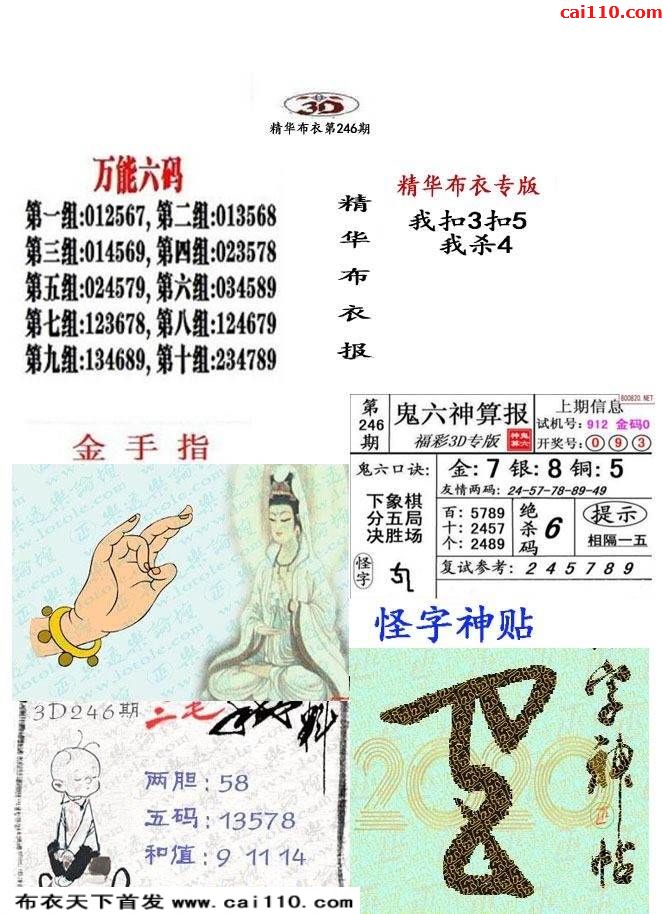 cai110.com
3D
精华布衣第246期
万能六码
第一组:012567, 第二组:013568
第三组:014569, 第四组:023578
第五组:024579, 第六组:034589
第七组:123678, 第八组:124679
第九组:134689, 第十组:234789
精华布衣报
精华布衣专版
我扣3扣5
我杀4
金手指
第246期
鬼六神算报
福彩3D专版
上期信息
800820.NET
试机号: 912 金码0
开奖号: 0 9 3
鬼六口诀:
金:7 银:8 铜:5
友情两码: 24-57-78-89-49
下象棋
分五局
决胜场
百: 5789
十: 2457
个: 2489
绝杀码 6
提示
相隔一五
怪字
复试参考: 2 4 5 7 8 9
怪字神贴
字神帖
2020
3D246期
二毛
两胆: 58
五码: 13578
和值: 9 11 14
布衣天下首发 www.cai110.com